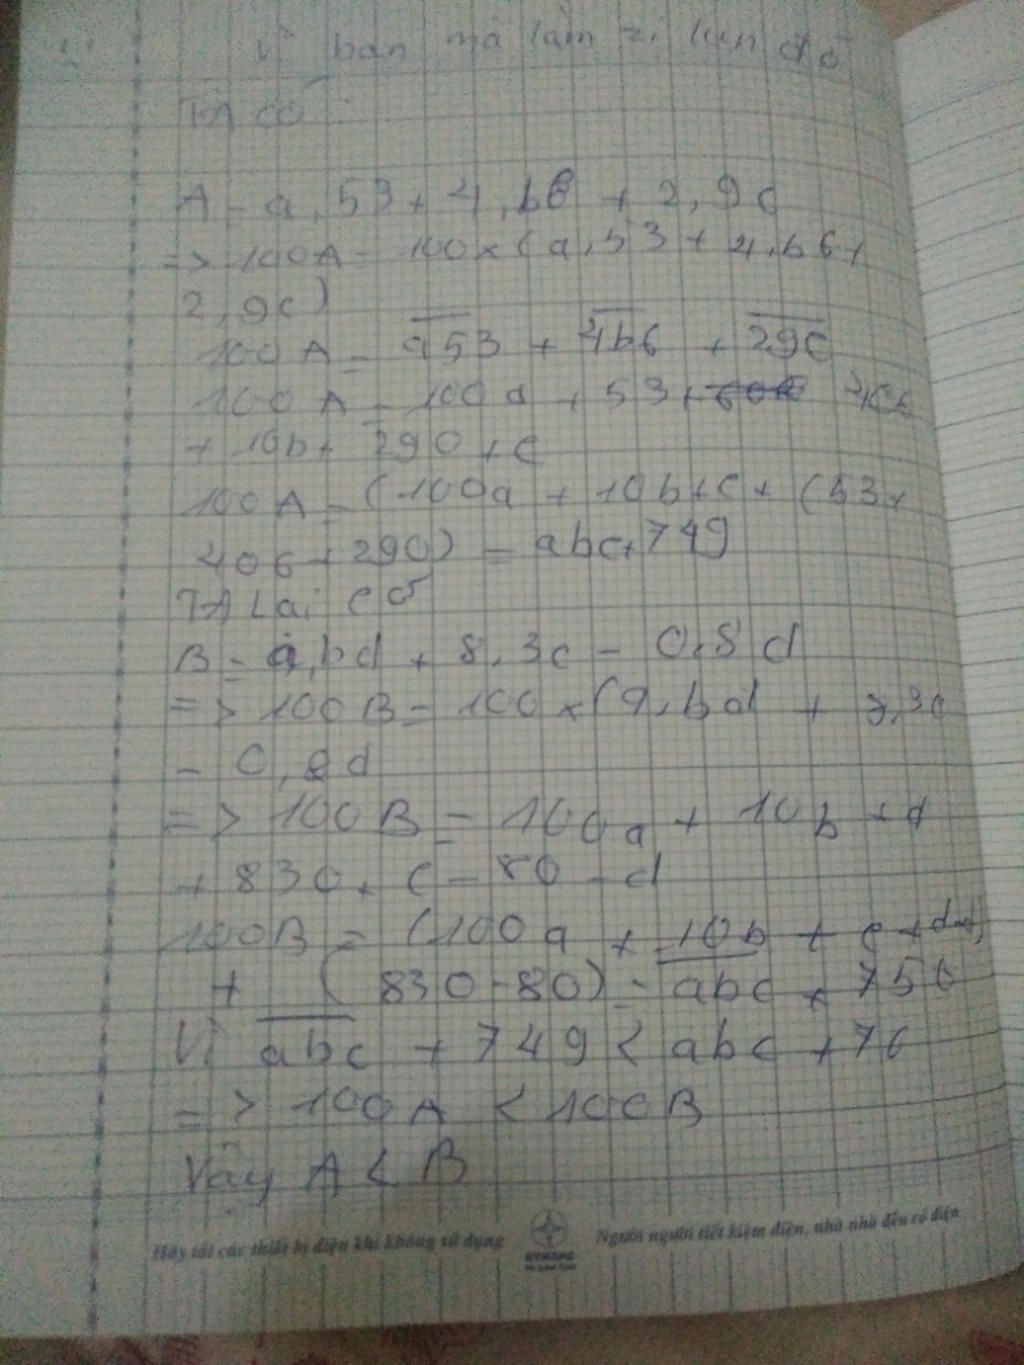 Vì bạn mà làm zi luôn đó
TA có :
A = a,53 + 4,b6 + 2,9c
=> 100A = 100 x (a,53 + 4,b6 +
2,9c)
100A = a53 + 4b6 + 29c
100A = 100a + 53 + 406
+ 10b + 290 + c
100A = (100a + 10b + c + (53 +
406 + 290) = abc + 749
TA Lại có
B = a,bd + 8,3c - 0,8d
=> 100B = 100 x (a,bd + 8,3c
- 0,8d
=> 100B = 100a + 10b + d
+ 830 + c - 80 - d
100B = (100a + 10b + c + d-d)
+ (830-80) = abc + 750
Vì abc + 749 < abc + 76
=> 100A < 100B
Vậy A < B
Hãy tắt các thiết bị điện khi không sử dụng
Người người tiết kiệm điện, nhà nhà đều có điện